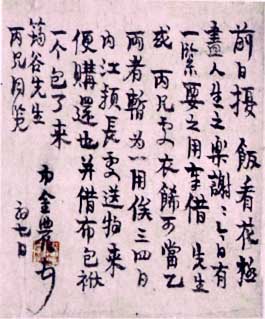 前日擾 飯看花極
盡人生之樂謝〻乙日有
一緊要之用幸借 先生
或 丙兄處衣飾可當乙
兩者暫為一用俟三四日
內江穎長處送物來
便購還也并借布包袱
一个包了来
筠谷先生
丙兄同覽
弟金農
初七日